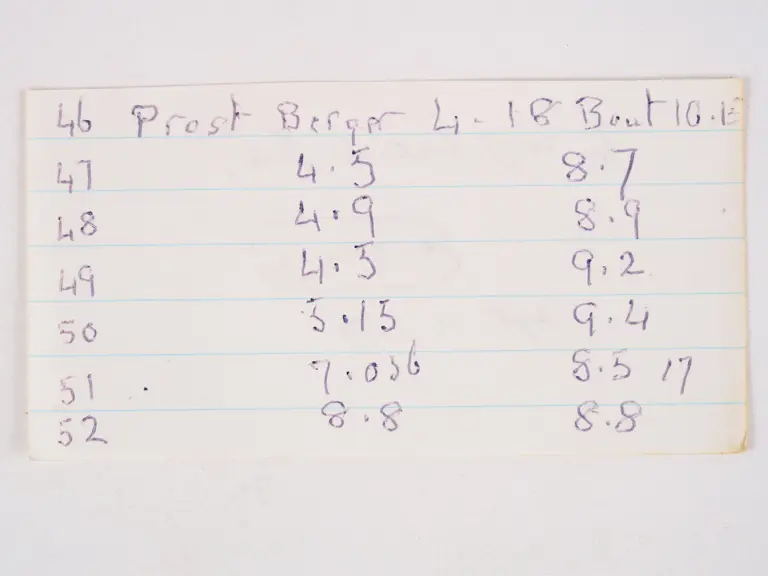 46 Prost Berger 4.18 Bout 10.
47 4.5 8.7
48 4.9 8.9
49 4.5 9.2
50 5.15 9.4
51 7.036 8.5 17
52 8.8 8.8